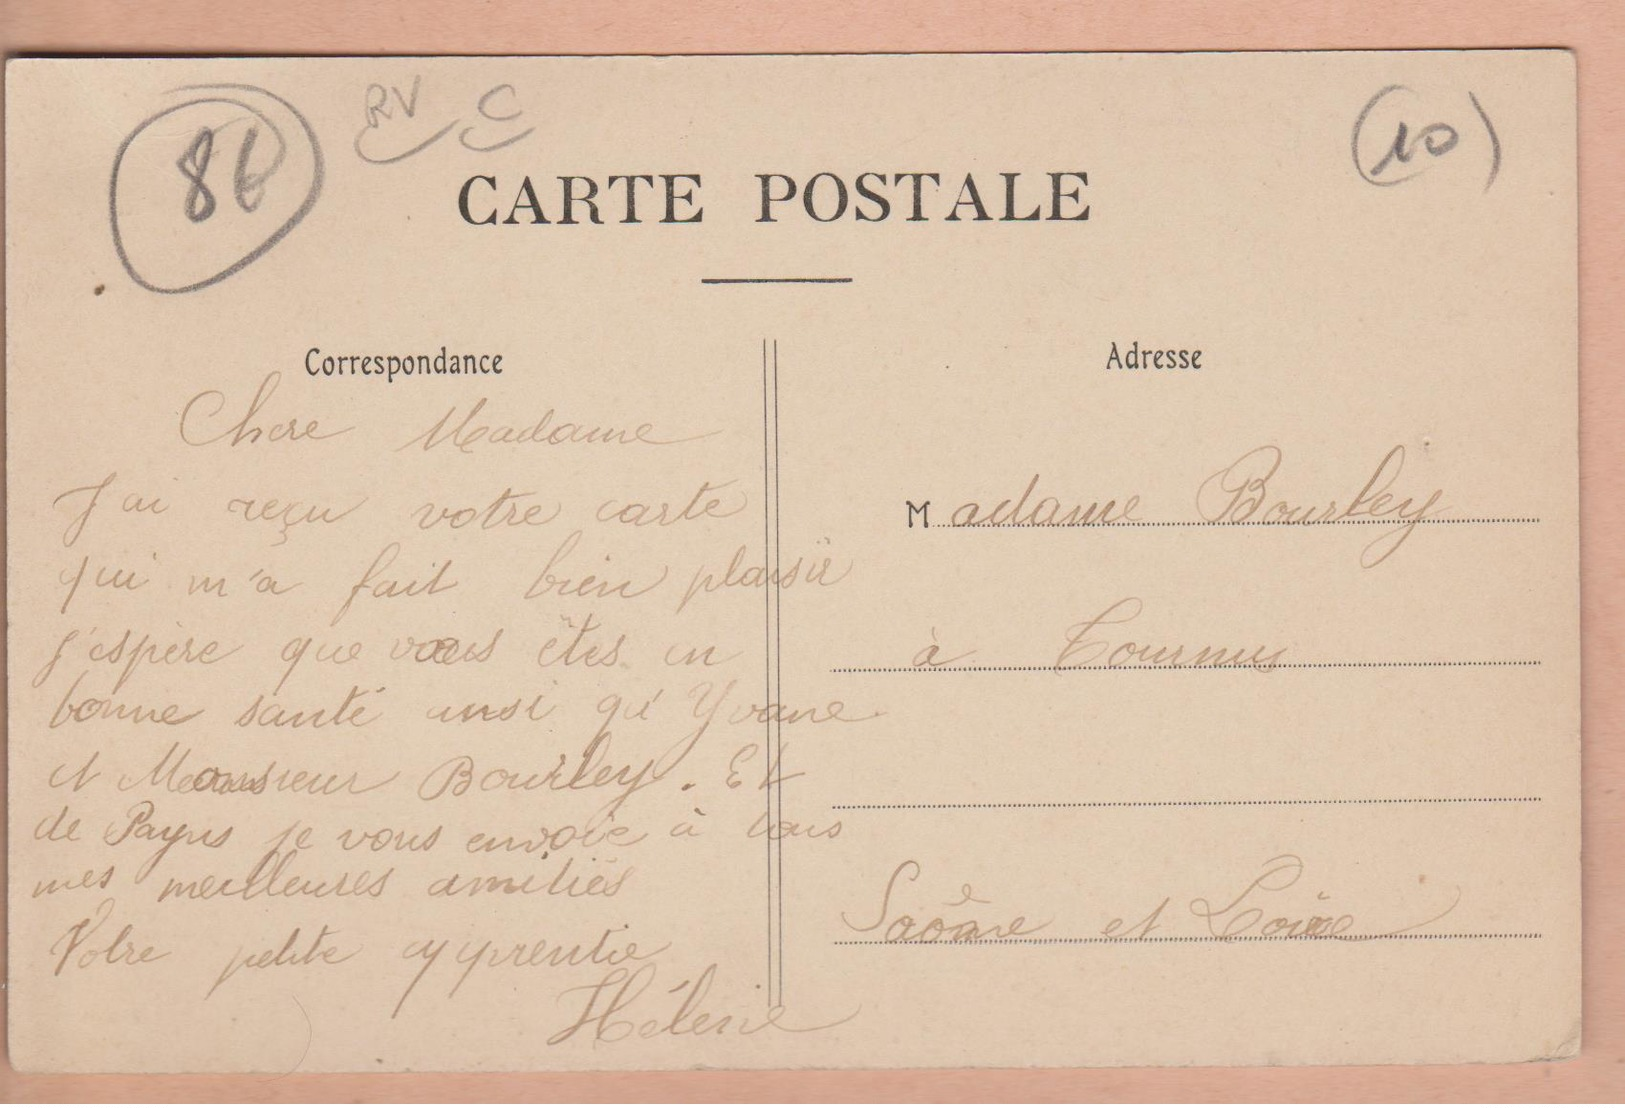 86
RV C
10
CARTE POSTALE
Correspondance
Chere Madame
J'ai reçu votre carte
qui m'a fait bien plaisir
j'espère que vous êtes en
bonne santé ainsi qu'Yvane
et Monsieur Bourley. Et
de Payns je vous envoie à tous
mes meilleures amitiés
Votre petite apprentie
Hélène
Adresse
Madame Bourley
à Tournus
Saône et Loire